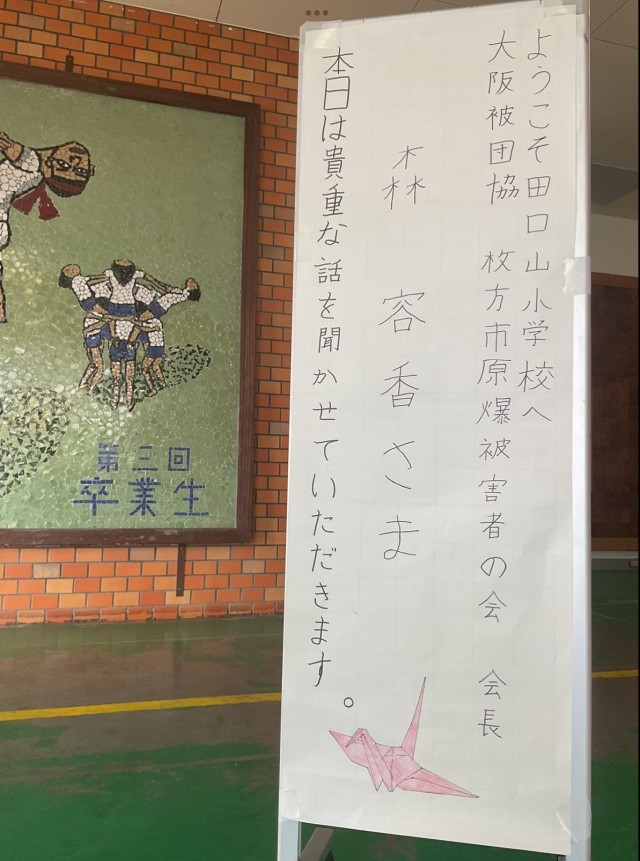 ようこそ田口山小学校へ
大阪被団協 枚方市原爆被害者の会 会長
森 容香さま
本日は貴重な話を聞かせていただきます。
第三回
卒業生